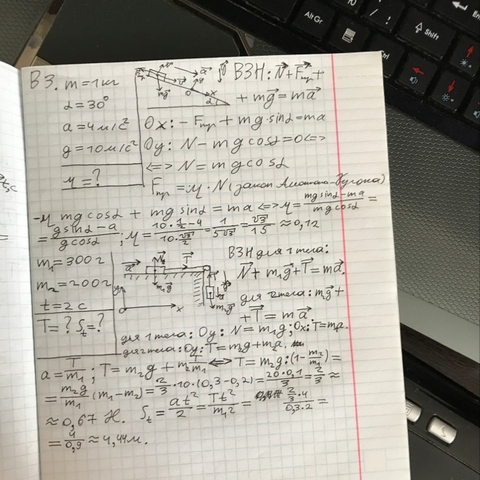 В3. m=1кг
α=30°
a=4м/с²
g=10м/с²
μ=?
ВЗН: N+Fтр+
+mg=ma
Ox: -Fтр+mg sinα=ma
Oy: N-mg cosα=0<=>
<=> N=mg cosα
Fтр=μ·N (закон Амонтона-Кулона)
-μ mg cosα + mg sinα = ma <=> μ = (mg sinα-ma)/(mg cosα) =
= (g sinα-a)/(g cosα); μ = (10·1/2-4)/(10·√3/2) = 1/(5√3) = √3/15 ≈ 0,12
m₁=300г
m₂=200г
t=2с
T=? Sₜ=?
ВЗН для 1 тела:
N+m₁g+T=ma.
для 2 тела: mg+
+T=ma
для 1 тела: Oy: N=m₁g; Ox: T=ma.
для 2 тела: Oy: T=m₂g+ma
a=T/m₁; T=m₂g+ <=> T=m₂g·(1-m₂/m₁)=
= m₂g/m₁·(m₁-m₂)=2/3·10·(0,3-0,2)=20·0,1/3=2/3≈
≈0,67 Н. Sₜ=at²/2=Tt²/m₁2= 2/3·4/0,3·2=
=4/0,9≈4,44м.
Alt Gr
Ctrl
Shift
Enter